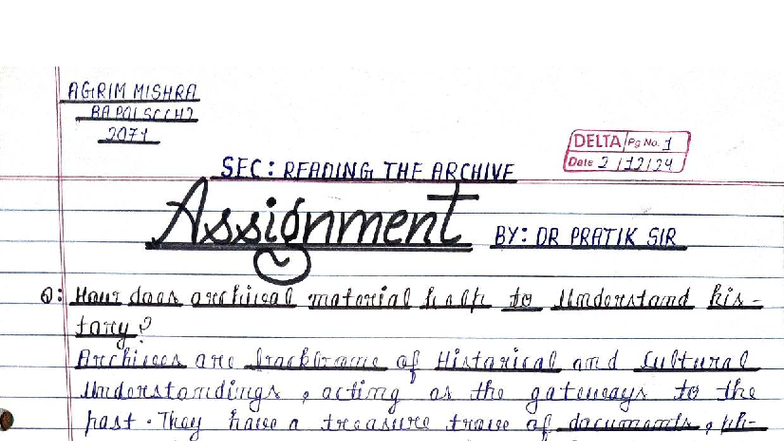 AGRIM MISHRA
BA POL SCC H)
2071
DELTA Pg No. 1
Date 2/12/24
SEC: READING THE ARCHIVE
Assignment
BY: DR PRATIK SIR
Q: How does archival material help to Understand his-
tory?
Archives are backbone of Historical and Cultural
Understandings, acting as the gateways to the
past. They have a treasure trove of documents, ph-